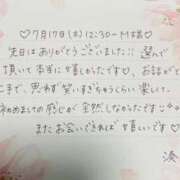 ♡7月17日(水)12:30〜M様♡
先日はありがとうございました!! 選んで
頂いて本当に嬉しかったです♡、お話がとっ
こまで、思わず笑いすぎちゃうくらい楽しくて、
初めましての感じが全然しなかったです
またお会いできれば嬉しいです♡
湊